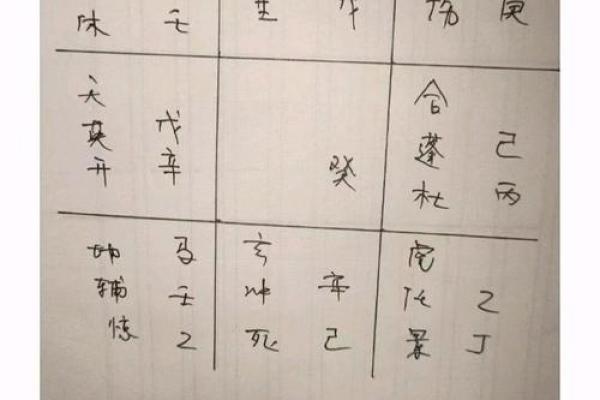 休 壬 生 戊 伤 庚
天 合
英 戊 蓬 己
开 辛 癸 杜 丙
地 马 玄 虎
辅 壬 冲 辛 任 乙
惊 乙 死 己 景 丁